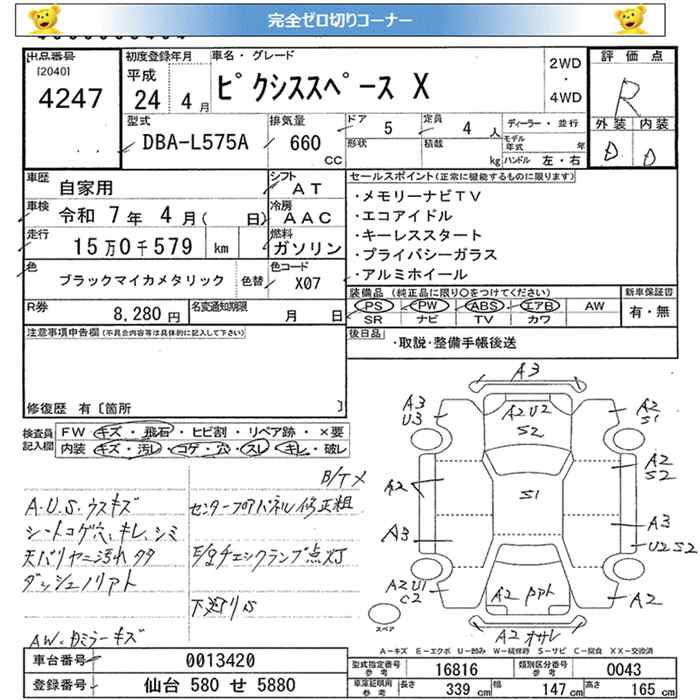 完全ゼロ切りコーナー
出品番号
[2040]
4247
初度登録年月
平成
24 4月
車名・グレード
ピクシススペース X
2WD
・
4WD
評価点
R
外装 内装
D D
型式
DBA-L575A
排気量
660
cc
ドア
5
形状
定員
4 人
積載
kg
ディーラー・並行
モデル年式 年
ハンドル 左・右
車歴
自家用
シフト
AT
車検
令和 7年 4月( 日)
冷房
AAC
走行
15万0千579 km
燃料
ガソリン
色
ブラックマイカメタリック
色替
色コード
X07
R券
8,280円
名変通知期限
月 日
セールスポイント(正常に機能するものに限ります)
・メモリーナビTV
・エコアイドル
・キーレススタート
・プライバシーガラス
・アルミホイール
装備品 (純正品に限り○をつけてください)
PS PW ABS エアB AW
SR ナビ TV カワ
新車保証書
有・無
後日品
・取説・整備手帳後送
注意事項申告欄(不具合内容等は具体的に記入して下さい)
修復歴 有〔箇所 〕
検査員記入欄
FW キズ・飛石・ヒビ割・リペア跡・×要
内装 キズ・汚レ・コゲ・穴・スレ・キレ・破レ
B/Tメ
A.U.S.ウスキズ
シートコゲ穴、キレ、シミ
天バリヤニ汚れタタ
ダッシュノリアト
AW・カミラーキズ
センターフロアパネル修正粗
E/gチェックランプ点灯
下廻りS
A3
A3
U3
A2U2
S2
A2
S1
A2
A2
S2
S1
A3
A3
U2S2
A2U1
C2
A2
A2オサレ
スペア
A-キズ E-エクボ U-凹み W-補修跡 S-サビ C-腐食 XX-交換済
車台番号
0013420
登録番号
仙台 580 せ 5880
型式指定番号
参考
16816
類別区分番号
参考
0043
車庫証明用
参考
長さ 339 cm
幅 147 cm
高さ 165 cm